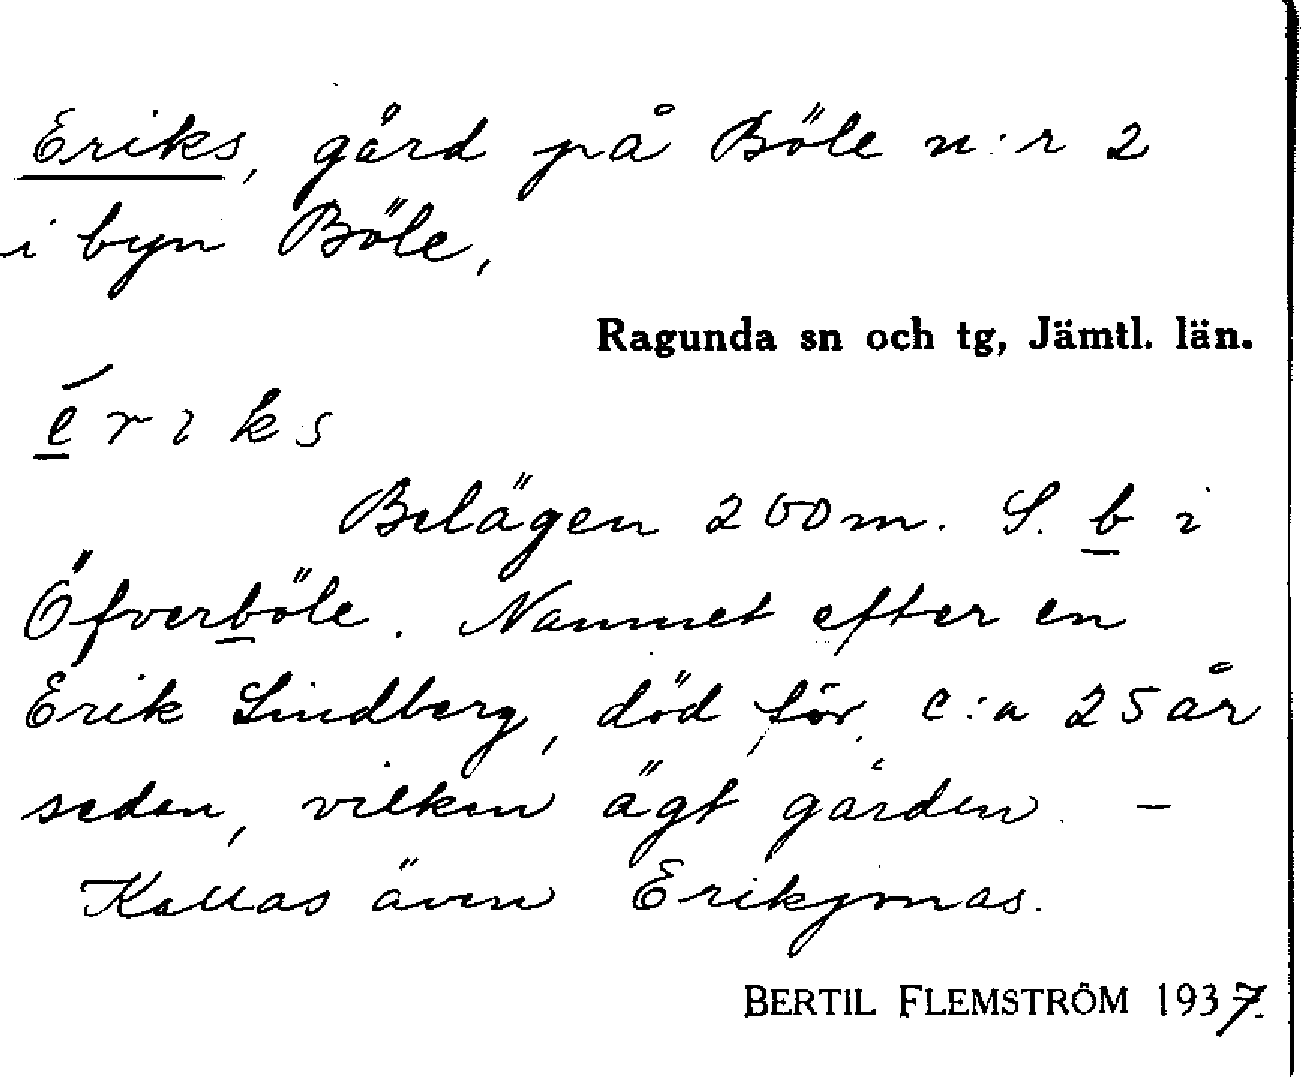 Eriks, gård på Böle n:r 2
i byn Böle,
Ragunda sn och tg, Jämtl. län.
é r i k s
Belägen 200 m. S. b i
Öfverböle. Namnet efter en
Erik Lindberg, död för c:a 25 år
sedan, vilken ägt gården. —
Kallas även Erikjonas.
BERTIL FLEMSTRÖM 1937.